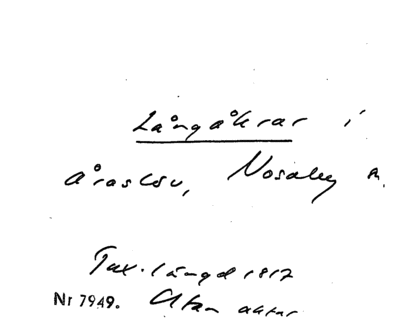 Långåkrar i
Åraslöv, Nosaby sn.
Tax. längd 1817
Nr 7949. Utan aktnr